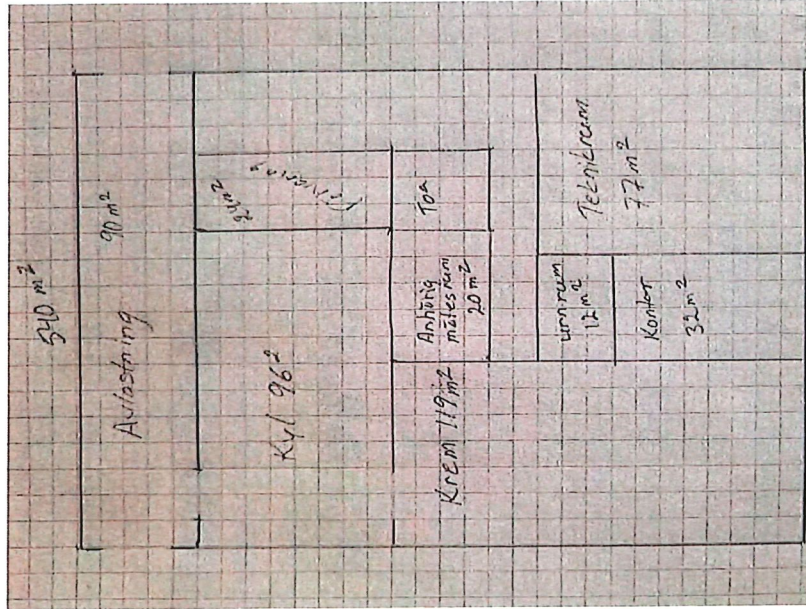 540 m²
Avlastning 90 m²
Kyl 96²
24m²
Toa
Anhörig
mötesrum
20 m²
Krem 119 m²
Teknikrum
77 m²
urnrum
12 m²
Kontor
32 m²